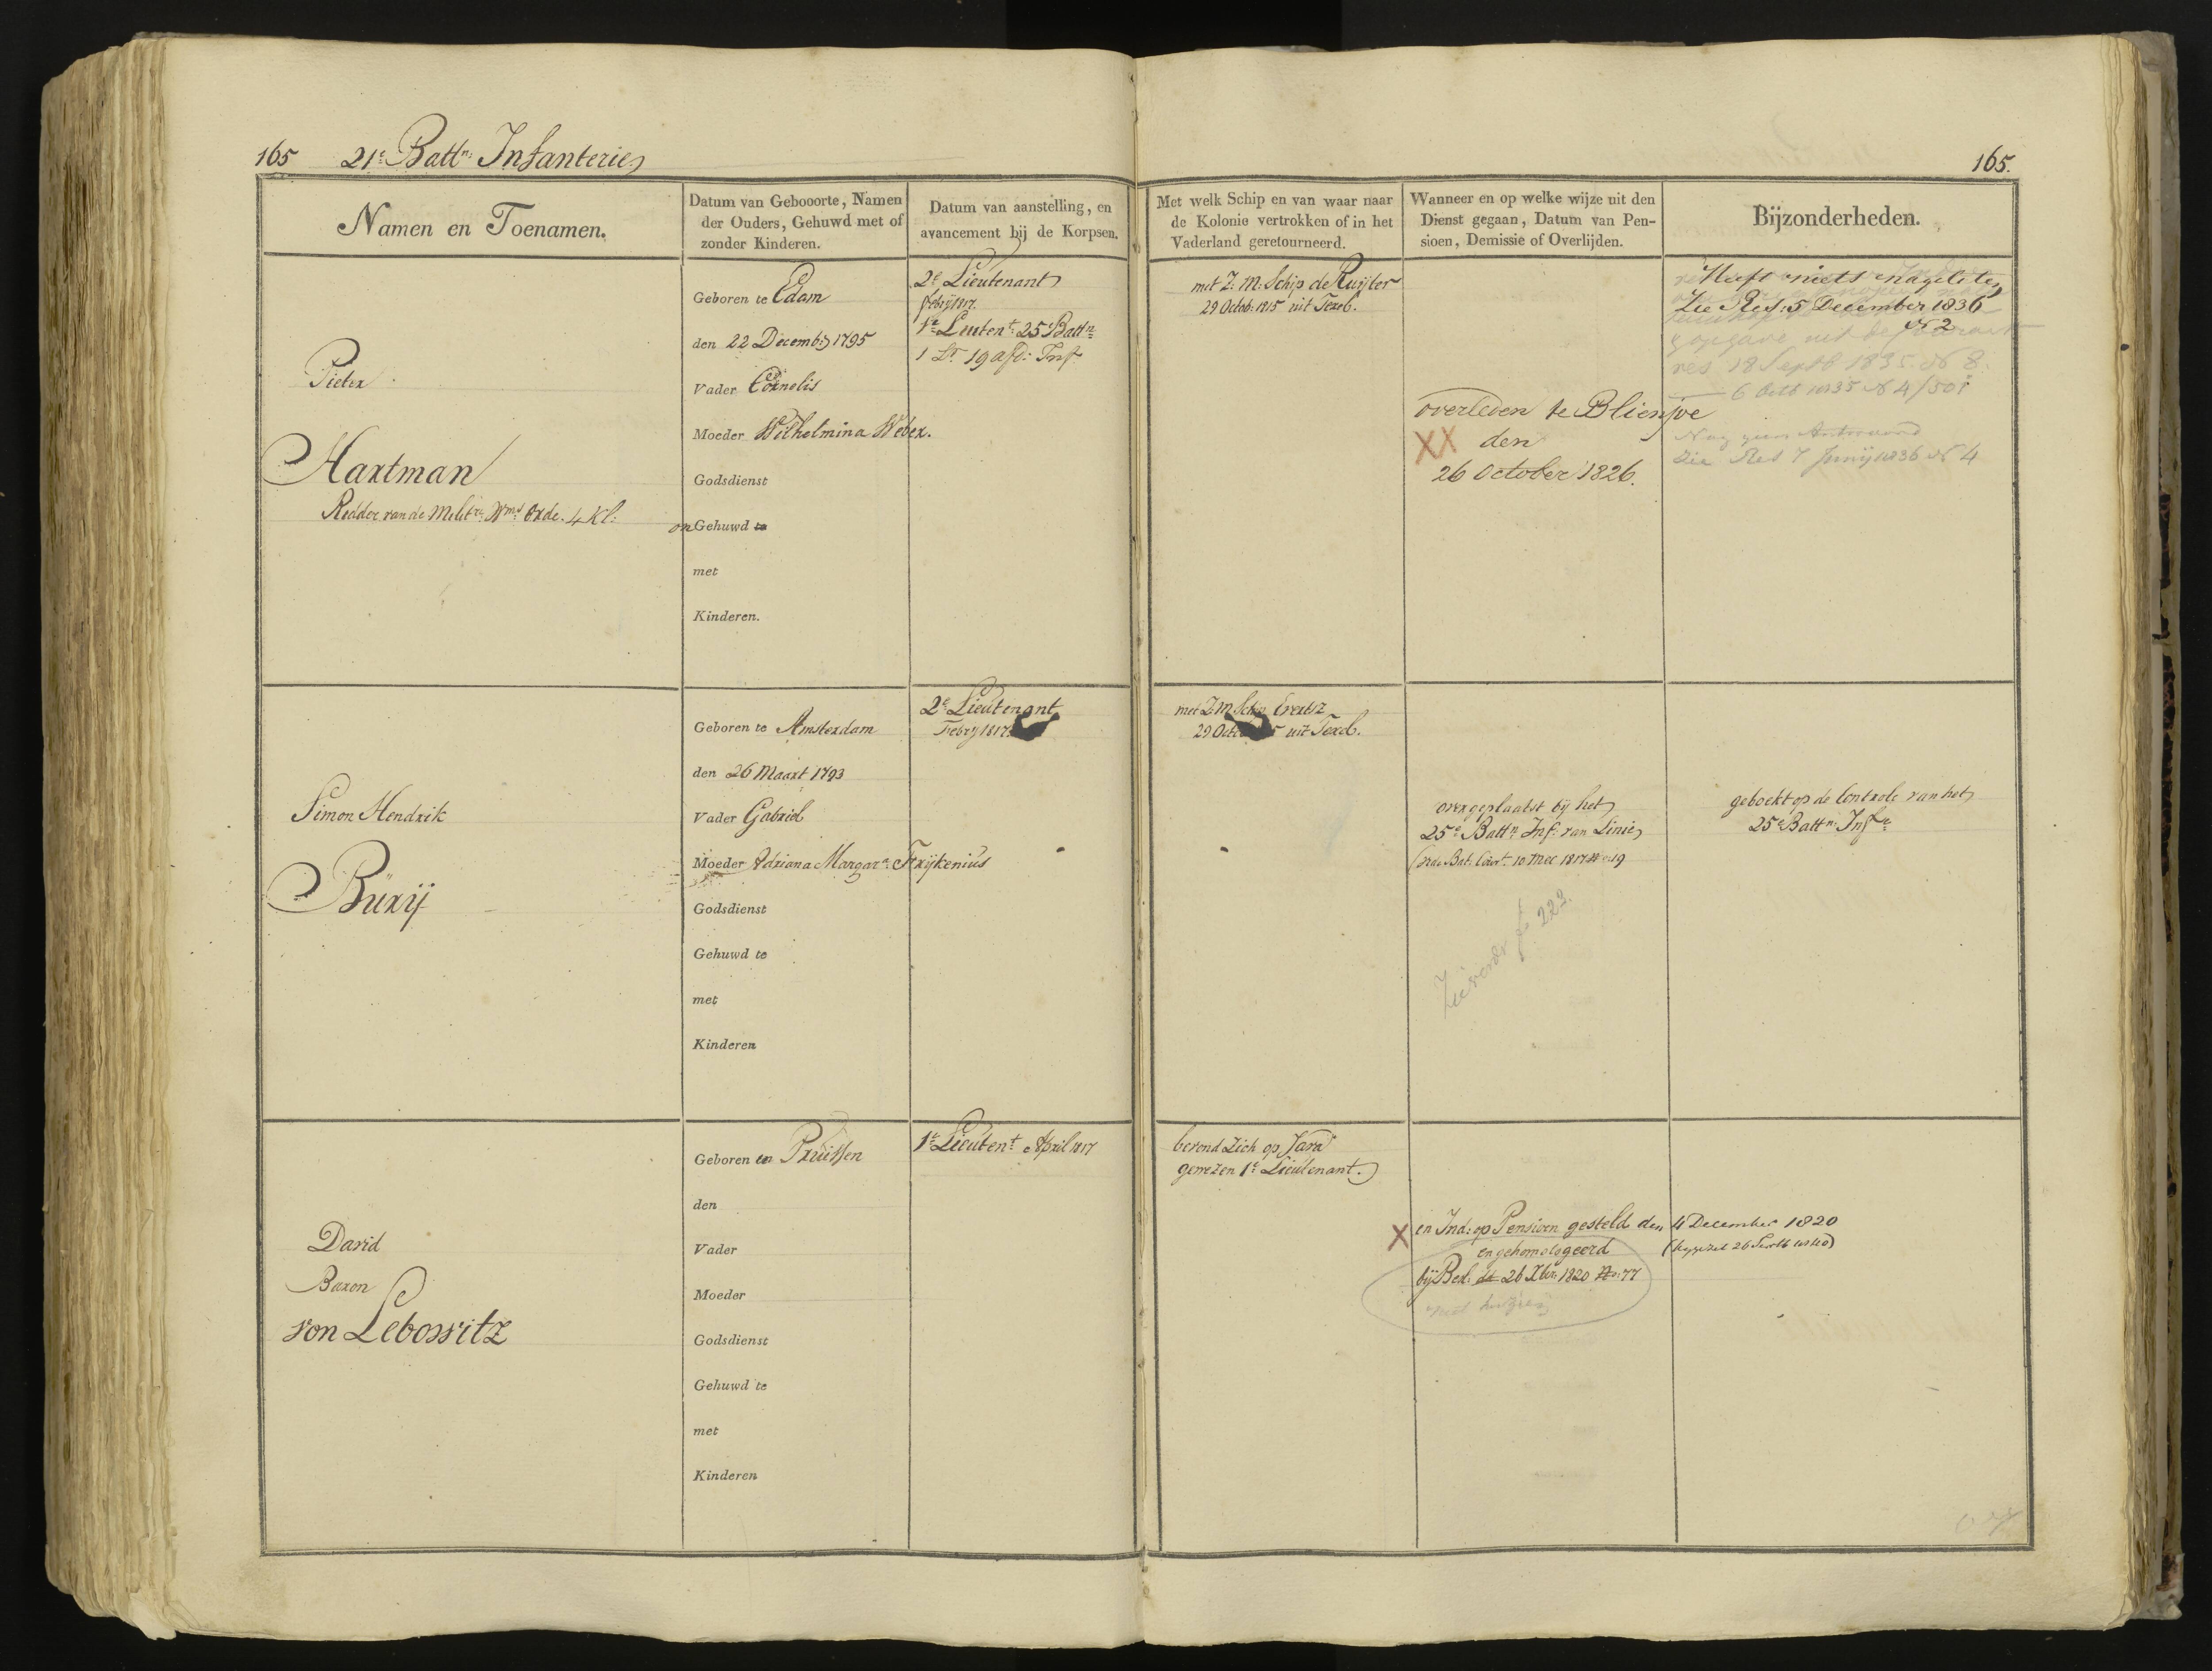 165 21e Battn: Infanterie
165.
Namen en Toenamen.
Datum van Gebooorte, Namen
der Ouders, Gehuwd met of
zonder Kinderen.
Datum van aanstelling, en
avancement bij de Korpsen.
Met welk Schip en van waar naar
de Kolonie vertrokken of in het
Vaderland geretourneerd.
Wanneer en op welke wijze uit den
Dienst gegaan, Datum van Pen-
sioen, Demissie of Overlijden.
Bijzonderheden.
Pieter
Hartman
Ridder van de Militre: Wms: Orde. 4 Kl:
Geboren te Edam
den 22 Decemb: 1795
Vader Cornelis
Moeder Wilhelmina Weber.
Godsdienst
on Gehuwd te
met
Kinderen.
2e Lieutenant
febrij 1817.
1e Lieutent: 25e Battn
1 Lt 19 afd: Inf.
met Z: M: Schip de Ruijter
29 Octob: 1815 uit Texel.
overleden te Blienjoe
XX den
26 October 1826.
Heeft niets nagelaten
Zie Res: 5 December 1836
N 2
res 18 Septb 1835 N 8.
6 Octb 1835 N 4/501
Nog geen Antwoord
Zie Res 7 Junij 1836 N 4
Simon Hendrik
Burij
Geboren te Amsterdam
den 26 Maart 1793
Vader Gabriel
Moeder Adriana Margara: Frijkenius
Godsdienst
Gehuwd te
met
Kinderen
2e Lieutenant
Febrij 1817.
met Z: M Schip Evertz
29 Octo 5 uit Texel.
overgeplaatst bij het
25e Battn Inf: van Linie
(vide Bat: Cour.t 10 Mei 1817 No 19
Zie verder fo 223.
geboekt op de Controle van het
25e Battn: Infie
David
Baron
von Lebowitz
Geboren in Pruissen
den
Vader
Moeder
Godsdienst
Gehuwd te
met
Kinderen
1e Lieutent April 1817
bevond zich op Java
gewezen 1e Lieutenant.
X in Ind: op Pensioen gesteld den 4 December 1820
en gehomologeerd
bij Besl: dd 26 Xber 1820 No: 77